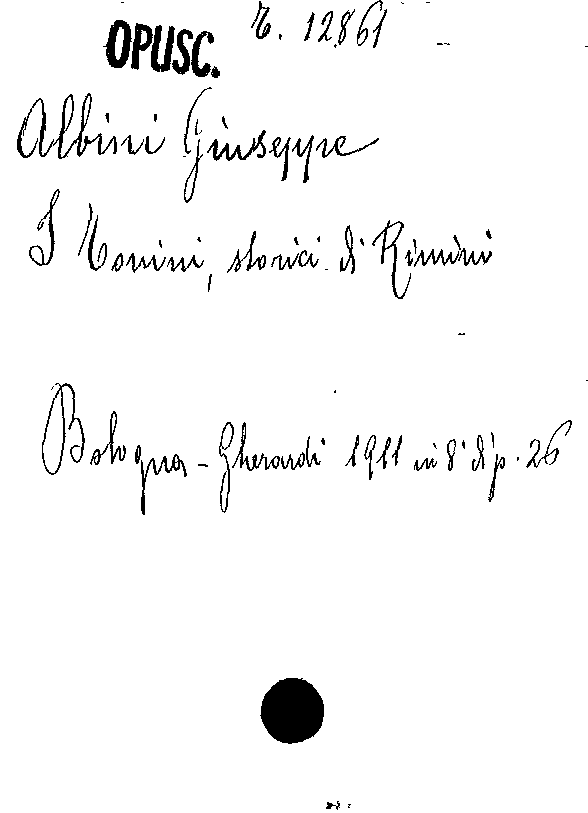 OPUSC. T. 12861
Albini Giuseppe
I Tonini, storici di Rimini
Bologna - Gherardi 1911 in 8° di p. 26